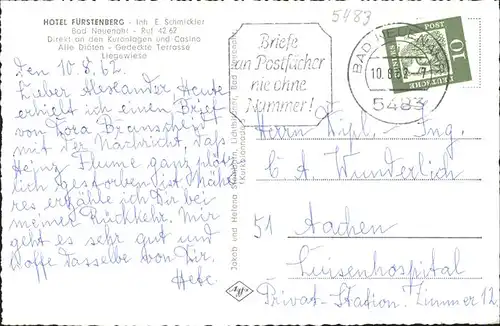 HOTEL FÜRSTENBERG - Inh. E. Schmickler
Bad Neuenahr - Ruf 4262
Direkt an den Kuranlagen und Casino
Alle Diäten - Gedeckte Terrasse
Liegewiese
Den 10.8.62.
Lieber Alexander Heute
erhielt ich einen Brief
von Dora Braunscheidt
mit der Nachricht, daß
Heinz Flume ganz plötz
lich gestorben ist. Nähe
res erzähle ich Dir bei
meiner Rückkehr. Mir
geht es sehr gut und
hoffe dasselbe von Dir.
5483
Briefe
an Postfächer
nie ohne
Nummer!
BAD NEUENAHR
10.8.62-7
5483
DEUTSCHE POST
10
Jakob und Helene Steinborn, Lichtb
(Kurkolonnade)
Herrn Dipl.-Ing.
C. A. Wunderlich
51 Aachen
Luisenhospital
Privat-Station. Zimmer 12.
Agfa